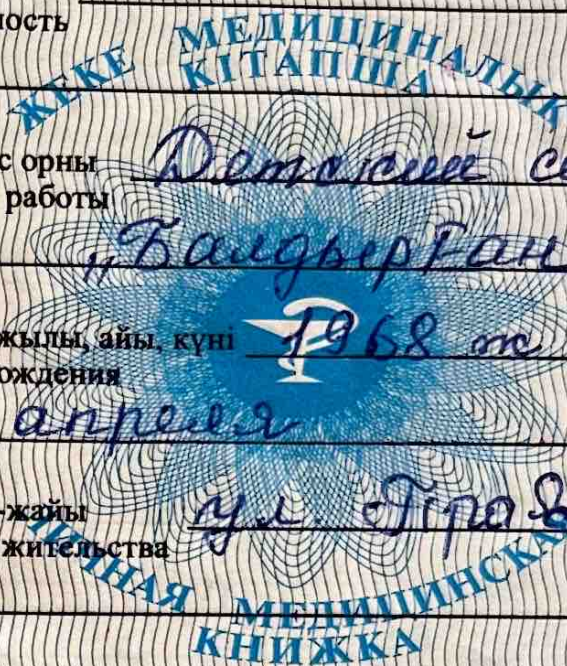 ность
ЖЕКЕ МЕДИЦИНАЛЫҚ
КІТАПША
с орны Детский с
работы
„Балдырған
жылы, айы, күні 1968 ж
ождения
апреля
-жайы ул.
жительства
ЛИЧНАЯ МЕДИЦИНСКАЯ
КНИЖКА